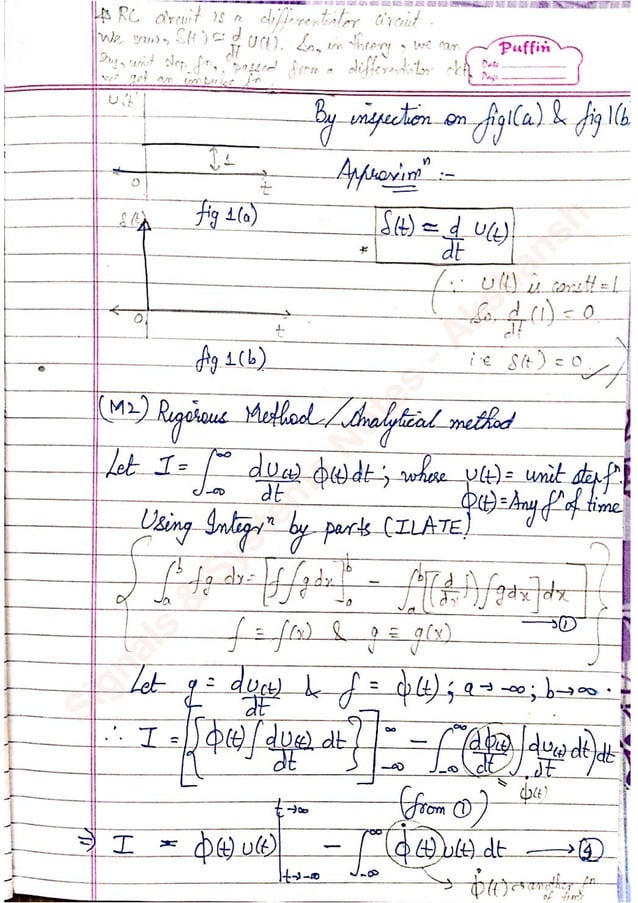 * RC circuit is a differentiator circuit.
We saw, δ(t) = d/dt U(t). So, in theory, we can
say, unit step fn, passed from a differentiator ckt
we get an impulse fn.
Puffin
Date
Page
U(t)
By inspection on fig1(a) & fig1(b
1
0
t
Approximⁿ :-
fig 1(a)
δ(t)
* δ(t) = d/dt U(t)
(∵ U(t) is constt = 1
So d/dt (1) = 0
0
t
i.e δ(t) = 0 ✓)
fig 1(b)
(M2) Rigorous Method / Analytical method
Let I = ∫_{-∞}^{∞} dU(t)/dt ϕ(t) dt ; where U(t) = unit step fⁿ.
ϕ(t) = Any fⁿ of time
Using Integrⁿ by parts (ILATE)
{ ∫_a^b fg dx = [f ∫g dx]_a^b - ∫_a^b [(d/dx f) ∫g dx] dx →①
f = f(x) & g = g(x) }
Let g = dU(t)/dt & f = ϕ(t) ; a → -∞ ; b → ∞ .
∴ I = [{ϕ(t) ∫ dU(t)/dt dt}]_{-∞}^{∞} - ∫_{-∞}^{∞} (dϕ(t)/dt ∫ dU(t)/dt dt) dt
= ϕ̇(t)
(from ①)
⇒ I = ϕ(t) U(t) |_{t→-∞}^{t→∞} - ∫_{-∞}^{∞} ϕ̇(t) U(t) dt →②
ϕ̇(t) → another fⁿ
of time
Signals & Systems Notes - Akshansh